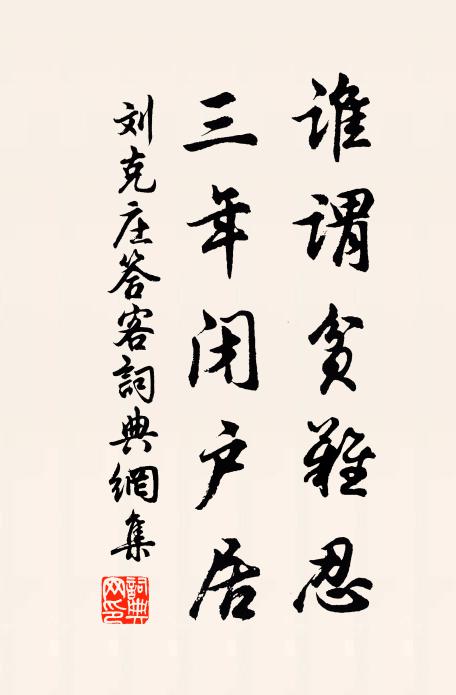 谁谓贫难忍
三年闭户居
刘克庄答客詞典網集
詞典网印